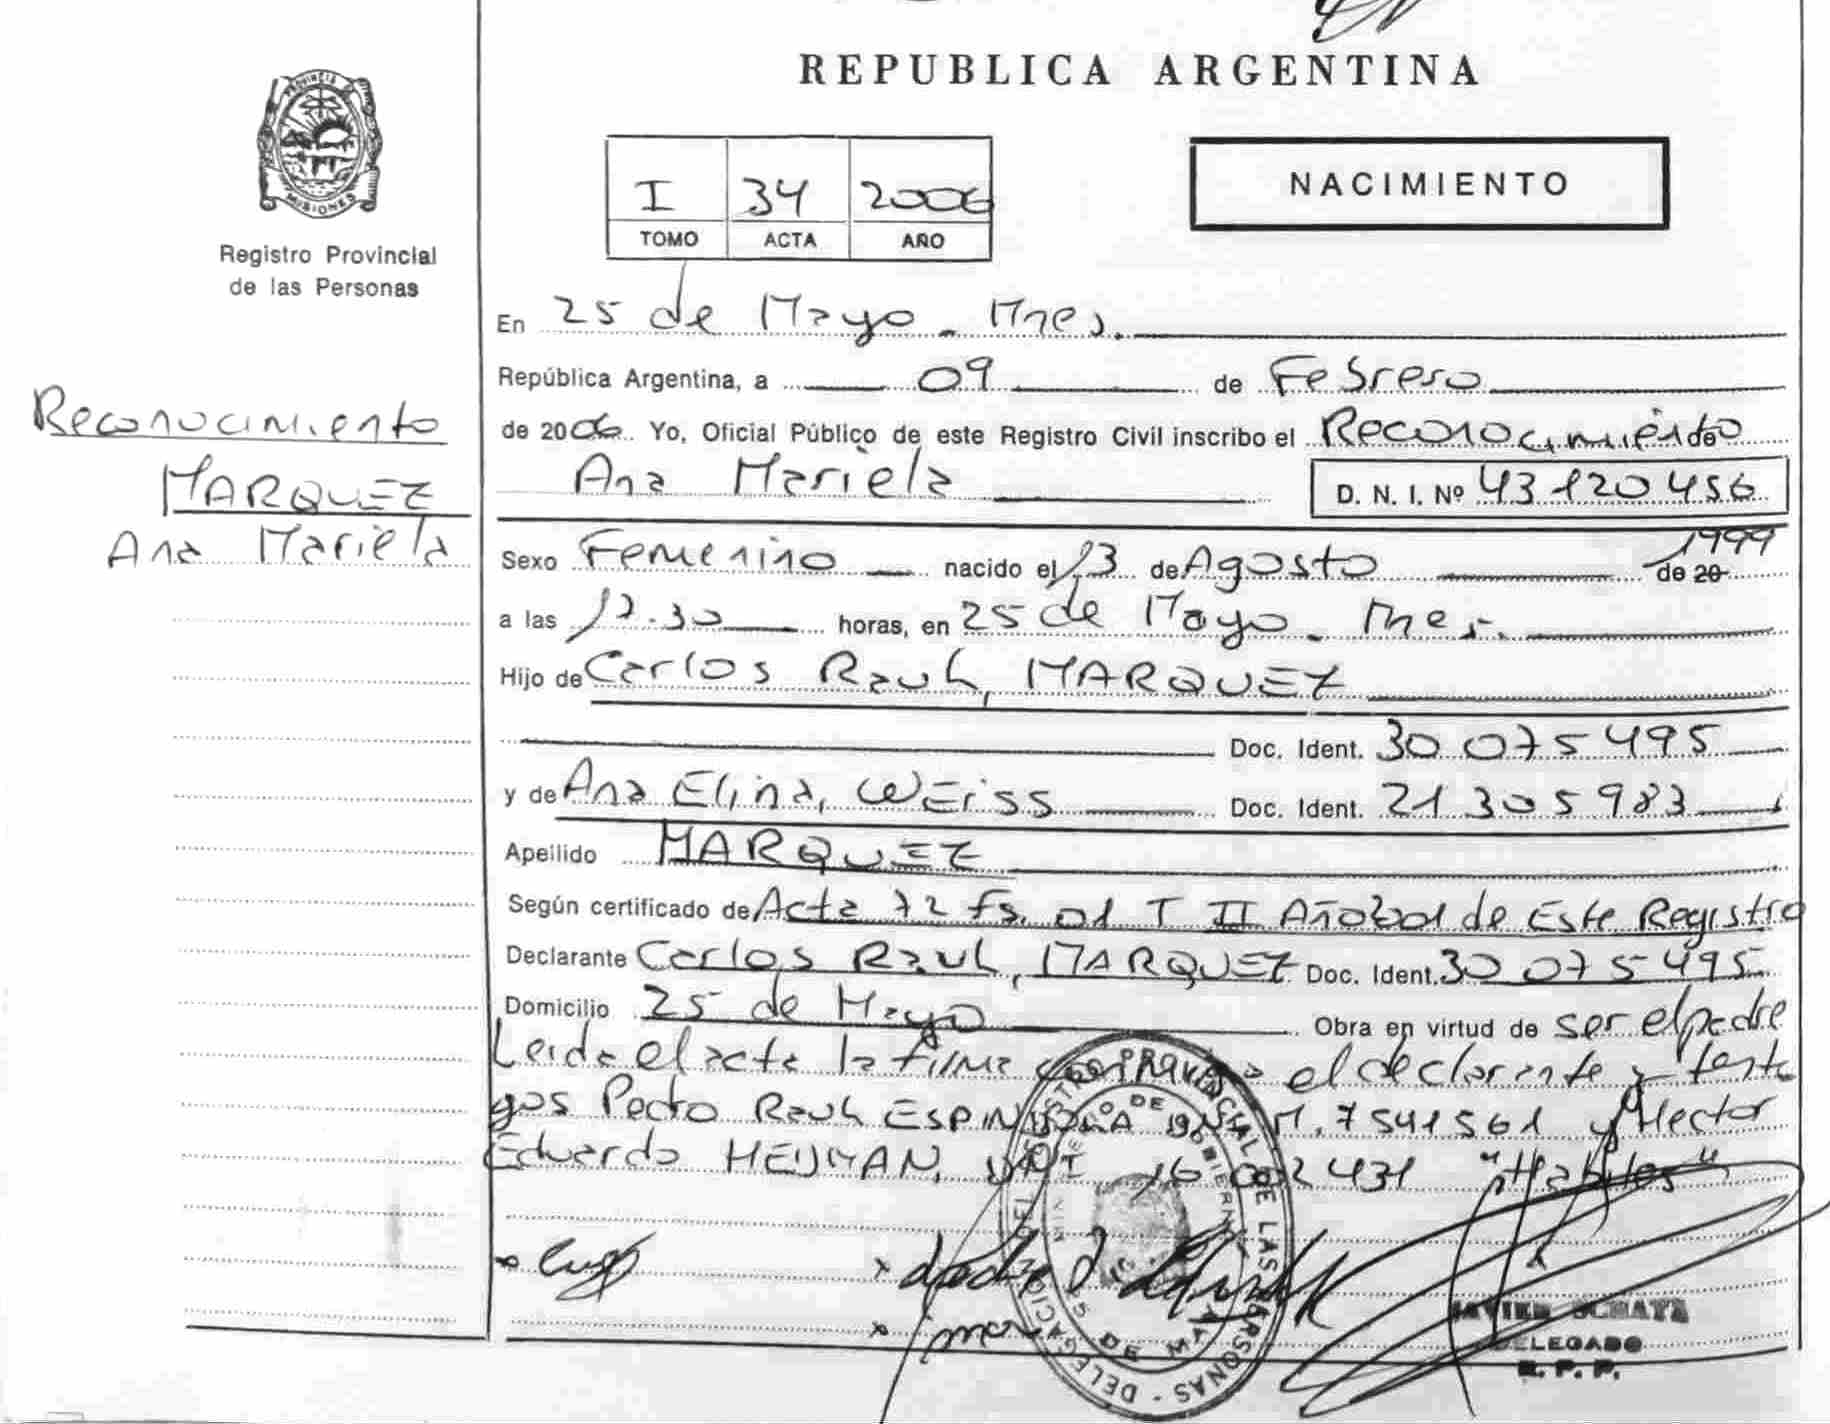 REPUBLICA ARGENTINA
PROVINCIA DE
MISIONES
Registro Provincial
de las Personas
I 34 2006
TOMO ACTA AÑO
NACIMIENTO
En 25 de Mayo - Mnes.
República Argentina, a 09 de Febrero
de 2006. Yo, Oficial Público de este Registro Civil inscribo el Reconocimiento de
Ana Mariela D. N. I. Nº 43120456
Reconocimiento
MARQUEZ
Ana Mariela
Sexo Femenino nacido el 13 de Agosto de 20 1999
a las 12.30 horas, en 25 de Mayo - Mnes.
Hijo de Carlos Raul, MARQUEZ
Doc. Ident. 30 075 495
y de Ana Elina, WEISS Doc. Ident. 21 305 983
Apellido MARQUEZ
Según certificado de Acta 72 Fs. 01 T II Año 2001 de Este Registro
Declarante Carlos Raul, MARQUEZ Doc. Ident. 30 075 495
Domicilio 25 de Mayo Obra en virtud de ser el padre
Leida el acta la firma el declarante y testi
gos Pedro Raul M. 7541561 y Hector
Eduardo HEIJMAN, 431 "Habiles"
REGISTRO PROVINCIAL DE LAS PERSONAS - DELEGACION
JAVIER
DELEGADO
R. P. P.